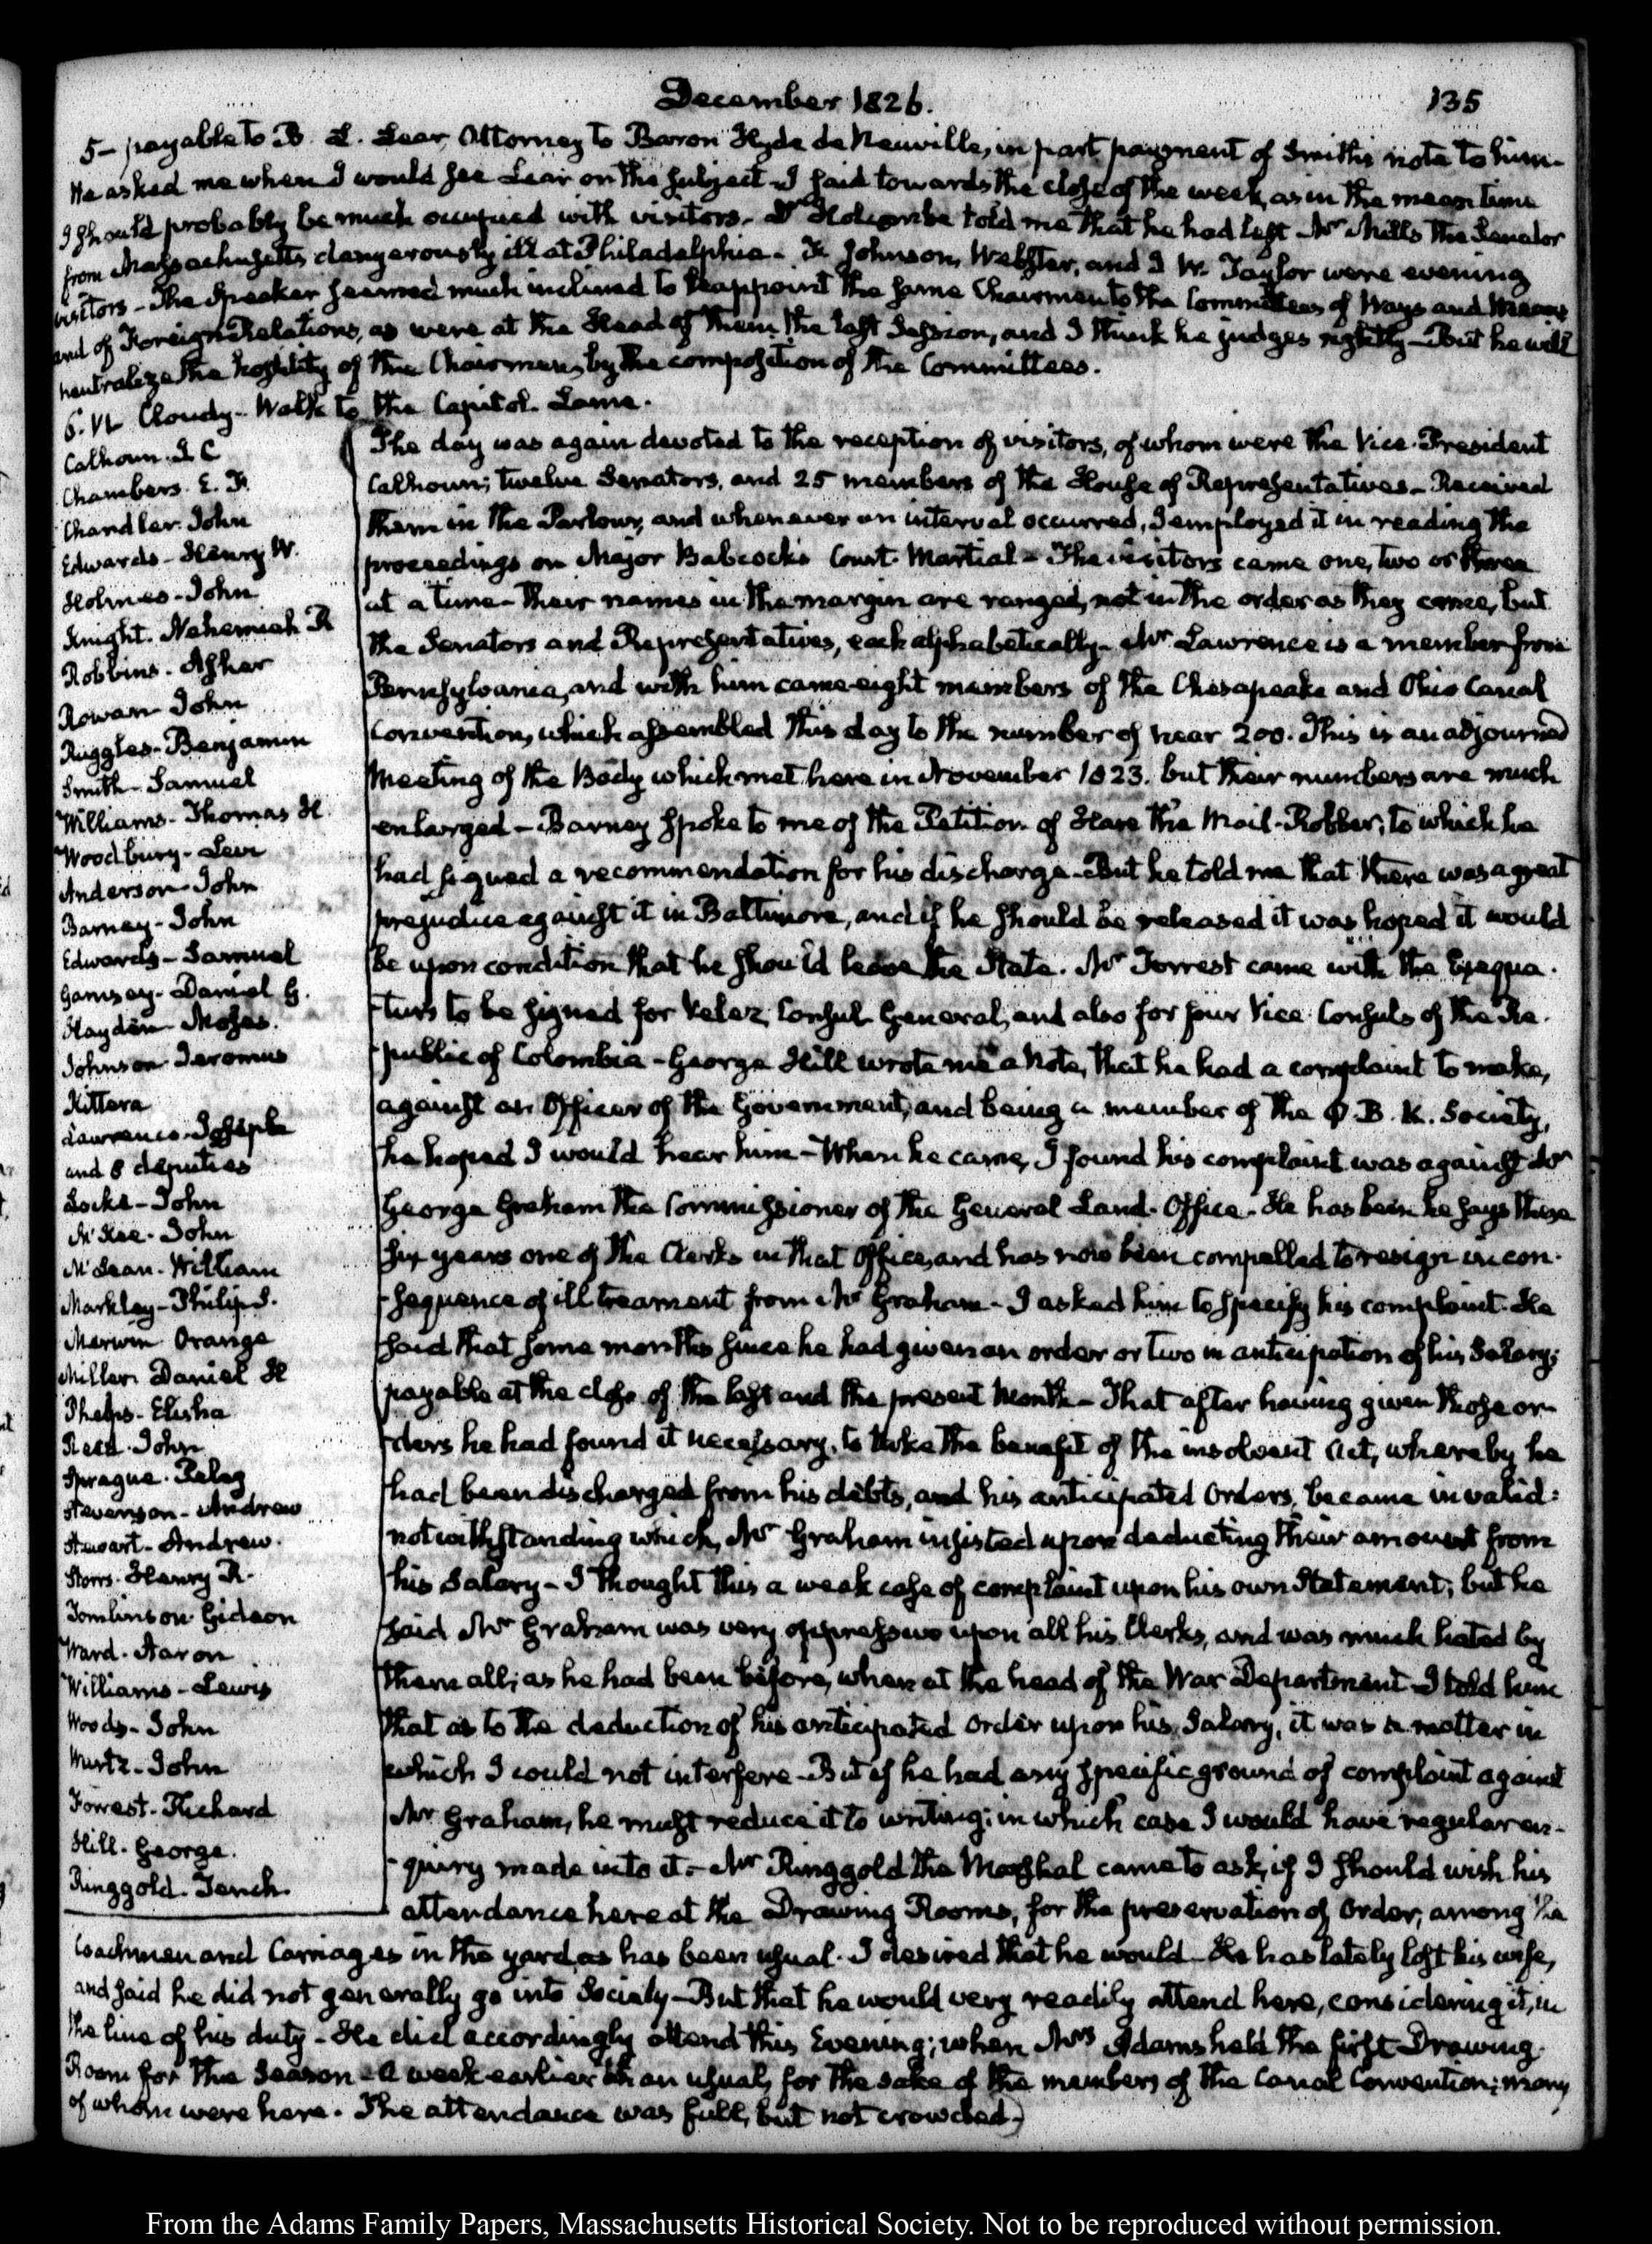 December 1826.
135
5– payable to B. L. Lear, Attorney to Baron Hyde de Neuville, in part payment of Smith's note to him–
He asked me when I would see Lear on the subject– I said towards the close of the week, as in the mean time
I should probably be much occupied with visitors– Dr Holcombe told me that he had left Mr Mills the Senator
from Massachusetts dangerously ill at Philadelphia– F. Johnson, Webster, and J W. Taylor were evening
visitors– The Speaker seemed much inclined to reappoint the same Chairmen to the Committees of Ways and Means
and of Foreign Relations, as were at the Head of them the last Session, and I think he judges rightly– But he will
neutralize the hostility of the Chairmen, by the composition of the Committees.
6. VI. Cloudy– Walk to the Capitol. Lame.
Calhoun. J. C
Chambers. E. F.
Chandler. John
Edwards– Henry W.
Holmes– John
Knight. Nehemiah R
Robbins. Asher
Rowan John
Ruggles– Benjamin
Smith– Samuel
Williams– Thomas H.
Woodbury– Levi
Anderson John
Barney– John
Edwards– Samuel
Garnsey– Daniel G.
Hayden– Moses.
Johnson Jeromus
Kittera
Lawrence. Joseph
and 8 deputies
Locke– John
McKee. John
McLean. William
Markley– Philip S.
Merwin Orange
Miller. Daniel H
Phelps. Elisha
Reed. John
Sprague. Peleg
Stevenson– Andrew
Stewart– Andrew.
Storrs. Henry R.
Tomlinson Gideon
Ward. Aaron
Williams– Lewis
Woods– John
Wurtz– John
Forrest. Richard
Hill. George.
Ringgold. Tench.
The day was again devoted to the reception of visitors, of whom were the Vice-President
Calhoun; twelve Senators, and 25 members of the House of Representatives– Received
them in the Parlour, and whenever an interval occurred, I employed it in reading the
proceedings on Major Babcock's Court-Martial– The visitors came one, two or three
at a time– their names in the margin are ranged, not in the order as they came, but
the Senators and Representatives, each alphabetically– Mr Lawrence is a member from
Pennsylvania, and with him came eight members of the Chesapeake and Ohio Canal
Convention, which assembled this day to the number of near 200. This is an adjourned
Meeting of the Body which met here in November 1823. but their numbers are much
enlarged– Barney spoke to me of the Petition of Hare the Mail-Robber; to which he
had signed a recommendation for his discharge– But he told me that there was a great
prejudice against it in Baltimore, and if he should be released it was hoped it would
be upon condition that he should leave the State. Mr Forrest came with the Exequa-
-turs to be signed for Velez, Consul General, and also for four Vice-Consuls of the Re-
-public of Colombia– George Hill wrote me a Note, that he had a complaint to make,
against an Officer of the Government, and being a member of the Φ. B. K. Society,
he hoped I would hear him– When he came, I found his complaint was against Mr
George Graham the Commissioner of the General Land-Office– He has been he says these
six years one of the Clerks in that Office, and has now been compelled to resign in con-
-sequence of ill treament from Mr Graham– I asked him to specify his complaint. He
said that some months since he had given an order or two in anticipation of his Salary;
payable at the close of the last and the present Month– That after having given those or-
-ders he had found it necessary, to take the benefit of the insolvent Act, whereby he
had been discharged from his debts, and his anticipated Orders, became invalid:
notwithstanding which, Mr Graham insisted upon deducting their amount from
his Salary– I thought this a weak case of complaint upon his own Statement; but he
said Mr Graham was very oppressive upon all his Clerks, and was much hated by
them all; as he had been before, when at the head of the War Department– I told him
that as to the deduction of his anticipated Order upon his Salary, it was a matter in
which I could not interfere– But if he had any specific ground of complaint against
Mr Graham, he must reduce it to writing; in which case I would have regular en-
-quiry made into it– Mr Ringgold the Marshal came to ask, if I should wish his
attendance here at the Drawing Rooms, for the preservation of Order, among the
Coachmen and Carriages in the yard as has been usual. I desired that he would– He has lately lost his wife,
and said he did not generally go into Society– But that he would very readily attend here, considering it, in
the line of his duty– He did accordingly attend this Evening; when Mrs Adams held the first Drawing
Room for the Season– A week earlier than usual, for the sake of the members of the Canal Convention; many
of whom were here. The attendance was full, but not crowded.
From the Adams Family Papers, Massachusetts Historical Society. Not to be reproduced without permission.